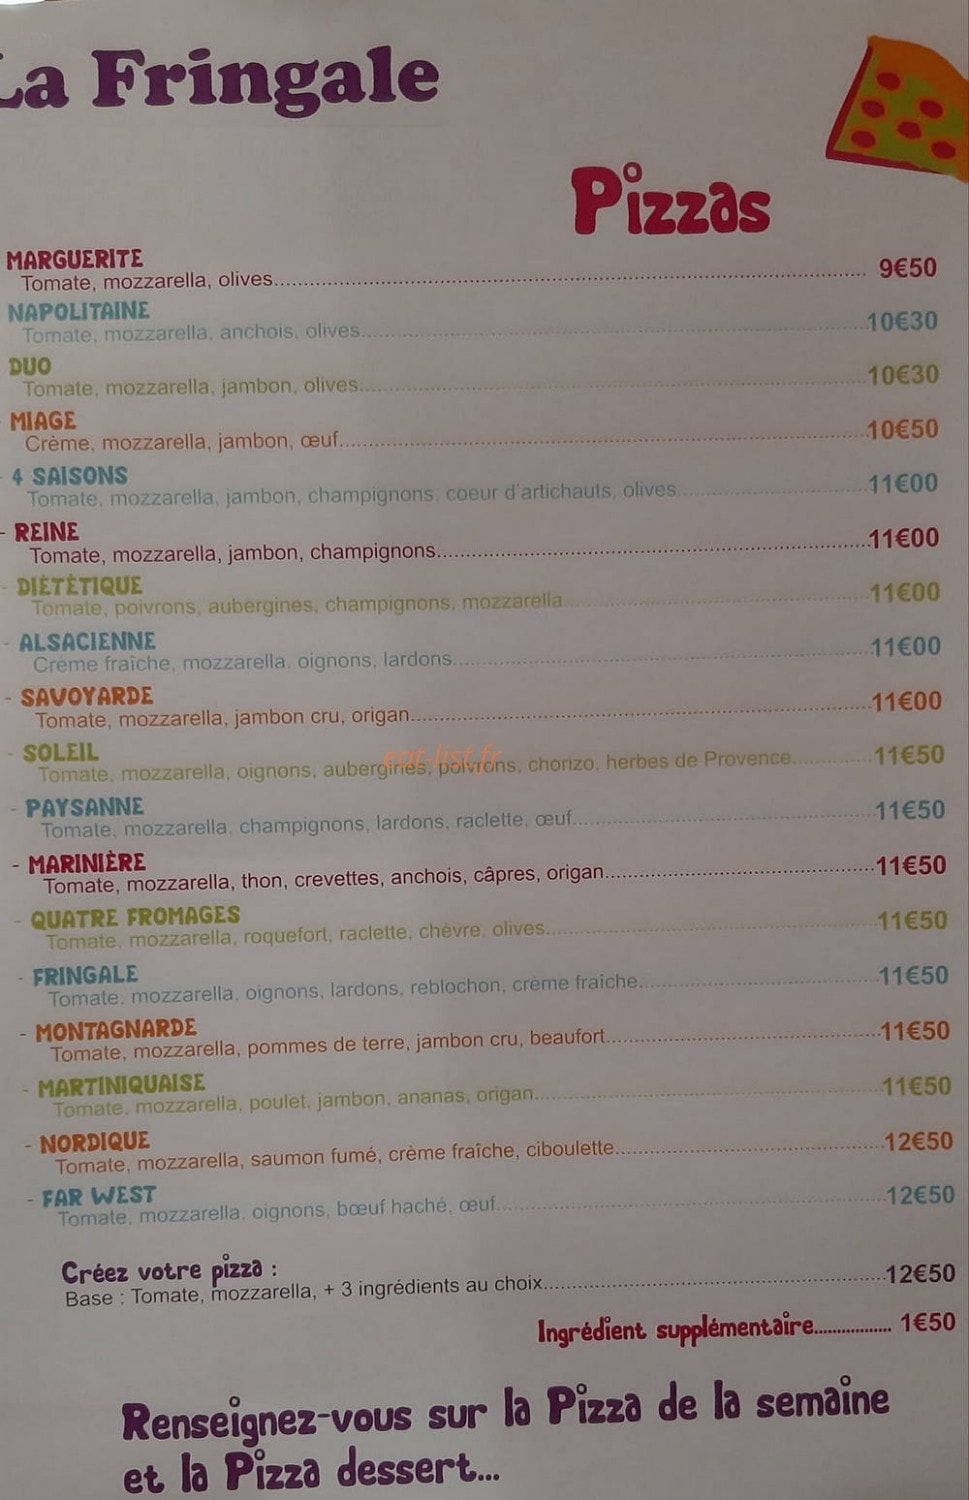 La Fringale
Pizzas
MARGUERITE
Tomate, mozzarella, olives.......... 9€50
NAPOLITAINE
Tomate, mozzarella, anchois, olives..........10€30
DUO
Tomate, mozzarella, jambon, olives..........10€30
MIAGE
Crème, mozzarella, jambon, œuf..........10€50
- 4 SAISONS
Tomate, mozzarella, jambon, champignons, coeur d'artichauts, olives..........11€00
- REINE
Tomate, mozzarella, jambon, champignons..........11€00
- DIÉTÉTIQUE
Tomate, poivrons, aubergines, champignons, mozzarella..........11€00
- ALSACIENNE
Crème fraîche, mozzarella, oignons, lardons..........11€00
- SAVOYARDE
Tomate, mozzarella, jambon cru, origan..........11€00
- SOLEIL
eat-list.fr
Tomate, mozzarella, oignons, aubergines, poivrons, chorizo, herbes de Provence..........11€50
- PAYSANNE
Tomate, mozzarella, champignons, lardons, raclette, œuf..........11€50
- MARINIÈRE
Tomate, mozzarella, thon, crevettes, anchois, câpres, origan..........11€50
- QUATRE FROMAGES
Tomate, mozzarella, roquefort, raclette, chèvre, olives..........11€50
- FRINGALE
Tomate, mozzarella, oignons, lardons, reblochon, crème fraîche..........11€50
- MONTAGNARDE
Tomate, mozzarella, pommes de terre, jambon cru, beaufort..........11€50
- MARTINIQUAISE
Tomate, mozzarella, poulet, jambon, ananas, origan..........11€50
- NORDIQUE
Tomate, mozzarella, saumon fumé, crème fraîche, ciboulette..........12€50
- FAR WEST
Tomate, mozzarella, oignons, bœuf haché, œuf..........12€50
Créez votre pizza :
Base : Tomate, mozzarella, + 3 ingrédients au choix..........12€50
Ingrédient supplémentaire.......... 1€50
Renseignez-vous sur la Pizza de la semaine
et la Pizza dessert...